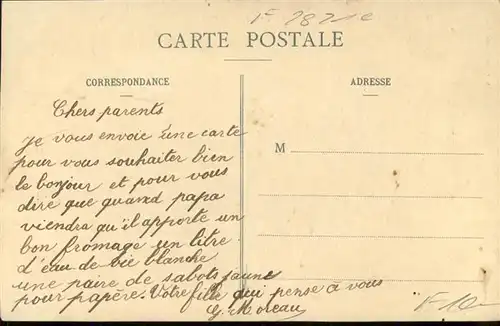 F 2821c
CARTE POSTALE
CORRESPONDANCE
ADRESSE
M
Chers parents
Je vous envoie une carte
pour vous souhaiter bien
le bonjour et pour vous
dire que quand papa
viendra qu'il apporte un
bon fromage un litre
d'eau de vie blanche
une paire de sabots jaune
pour papère. Votre fille qui pense à vous
G. Moreau